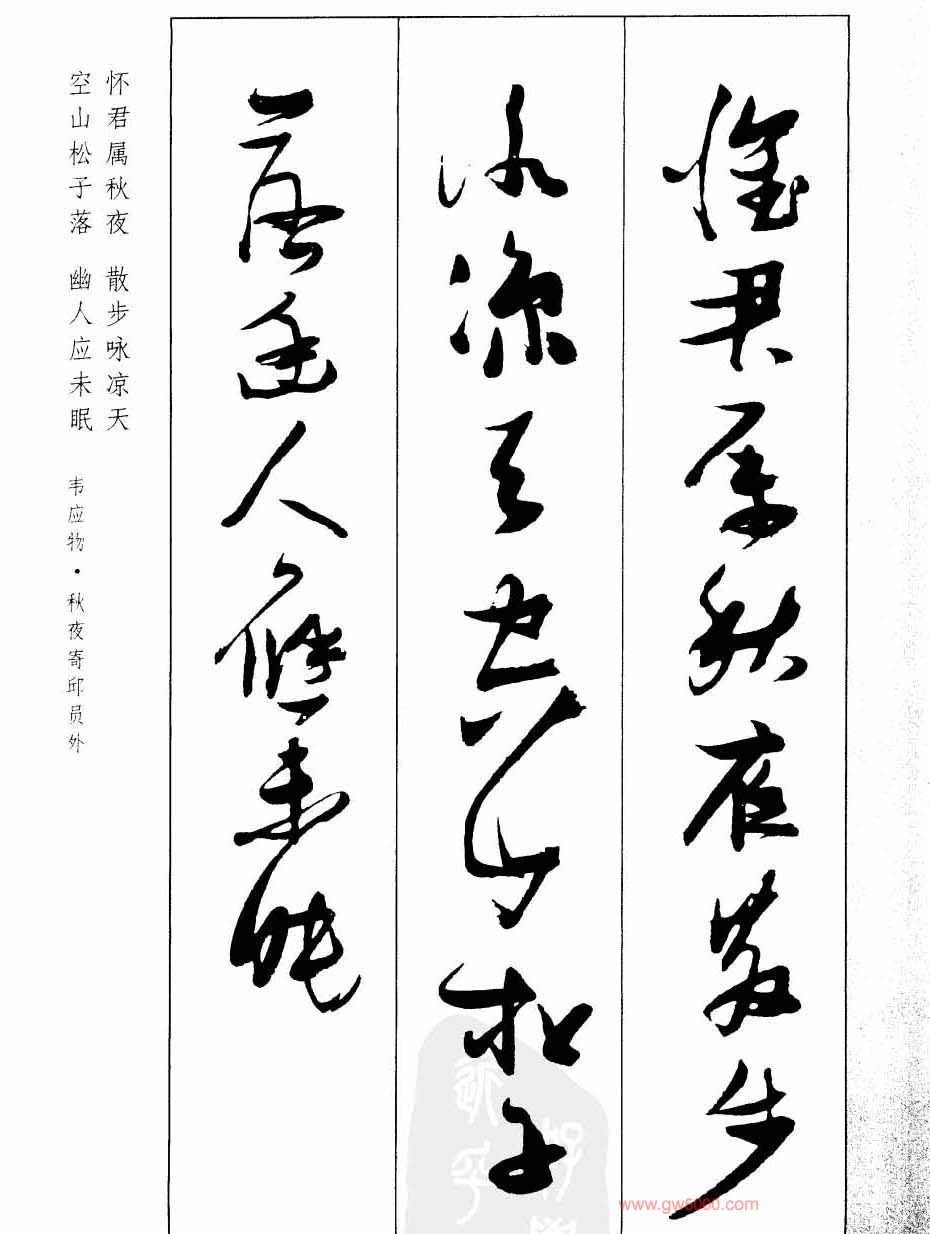 懷君属秋夜散步
咏凉天空山松子
落幽人應未眠
怀君属秋夜 散步咏凉天
空山松子落 幽人应未眠
韦应物·秋夜寄邱员外
www.gw5000.com